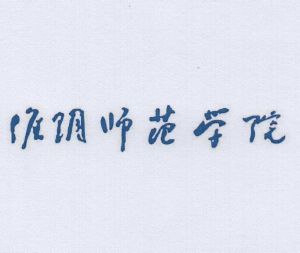 淮阴师范学院